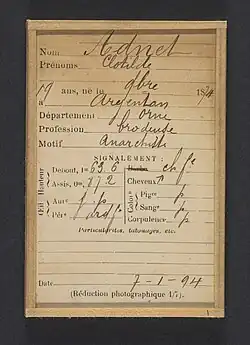 Nom Adnet
Prénoms Clotilde
19 ans, né à 9bre 1874
à Argentan
Département Orne
Profession brodeuse
Motif Anarchiste
SIGNALEMENT :
Œil Hauteur
Debout, 1m 63.6
Assis, 0m
Cheveux
Aue
Pér°
Color°
Pigre p
Sang° p
Corpulence p
Particularités, tatouages, etc.
Date 7-1-94
(Réduction photographique 1/7).